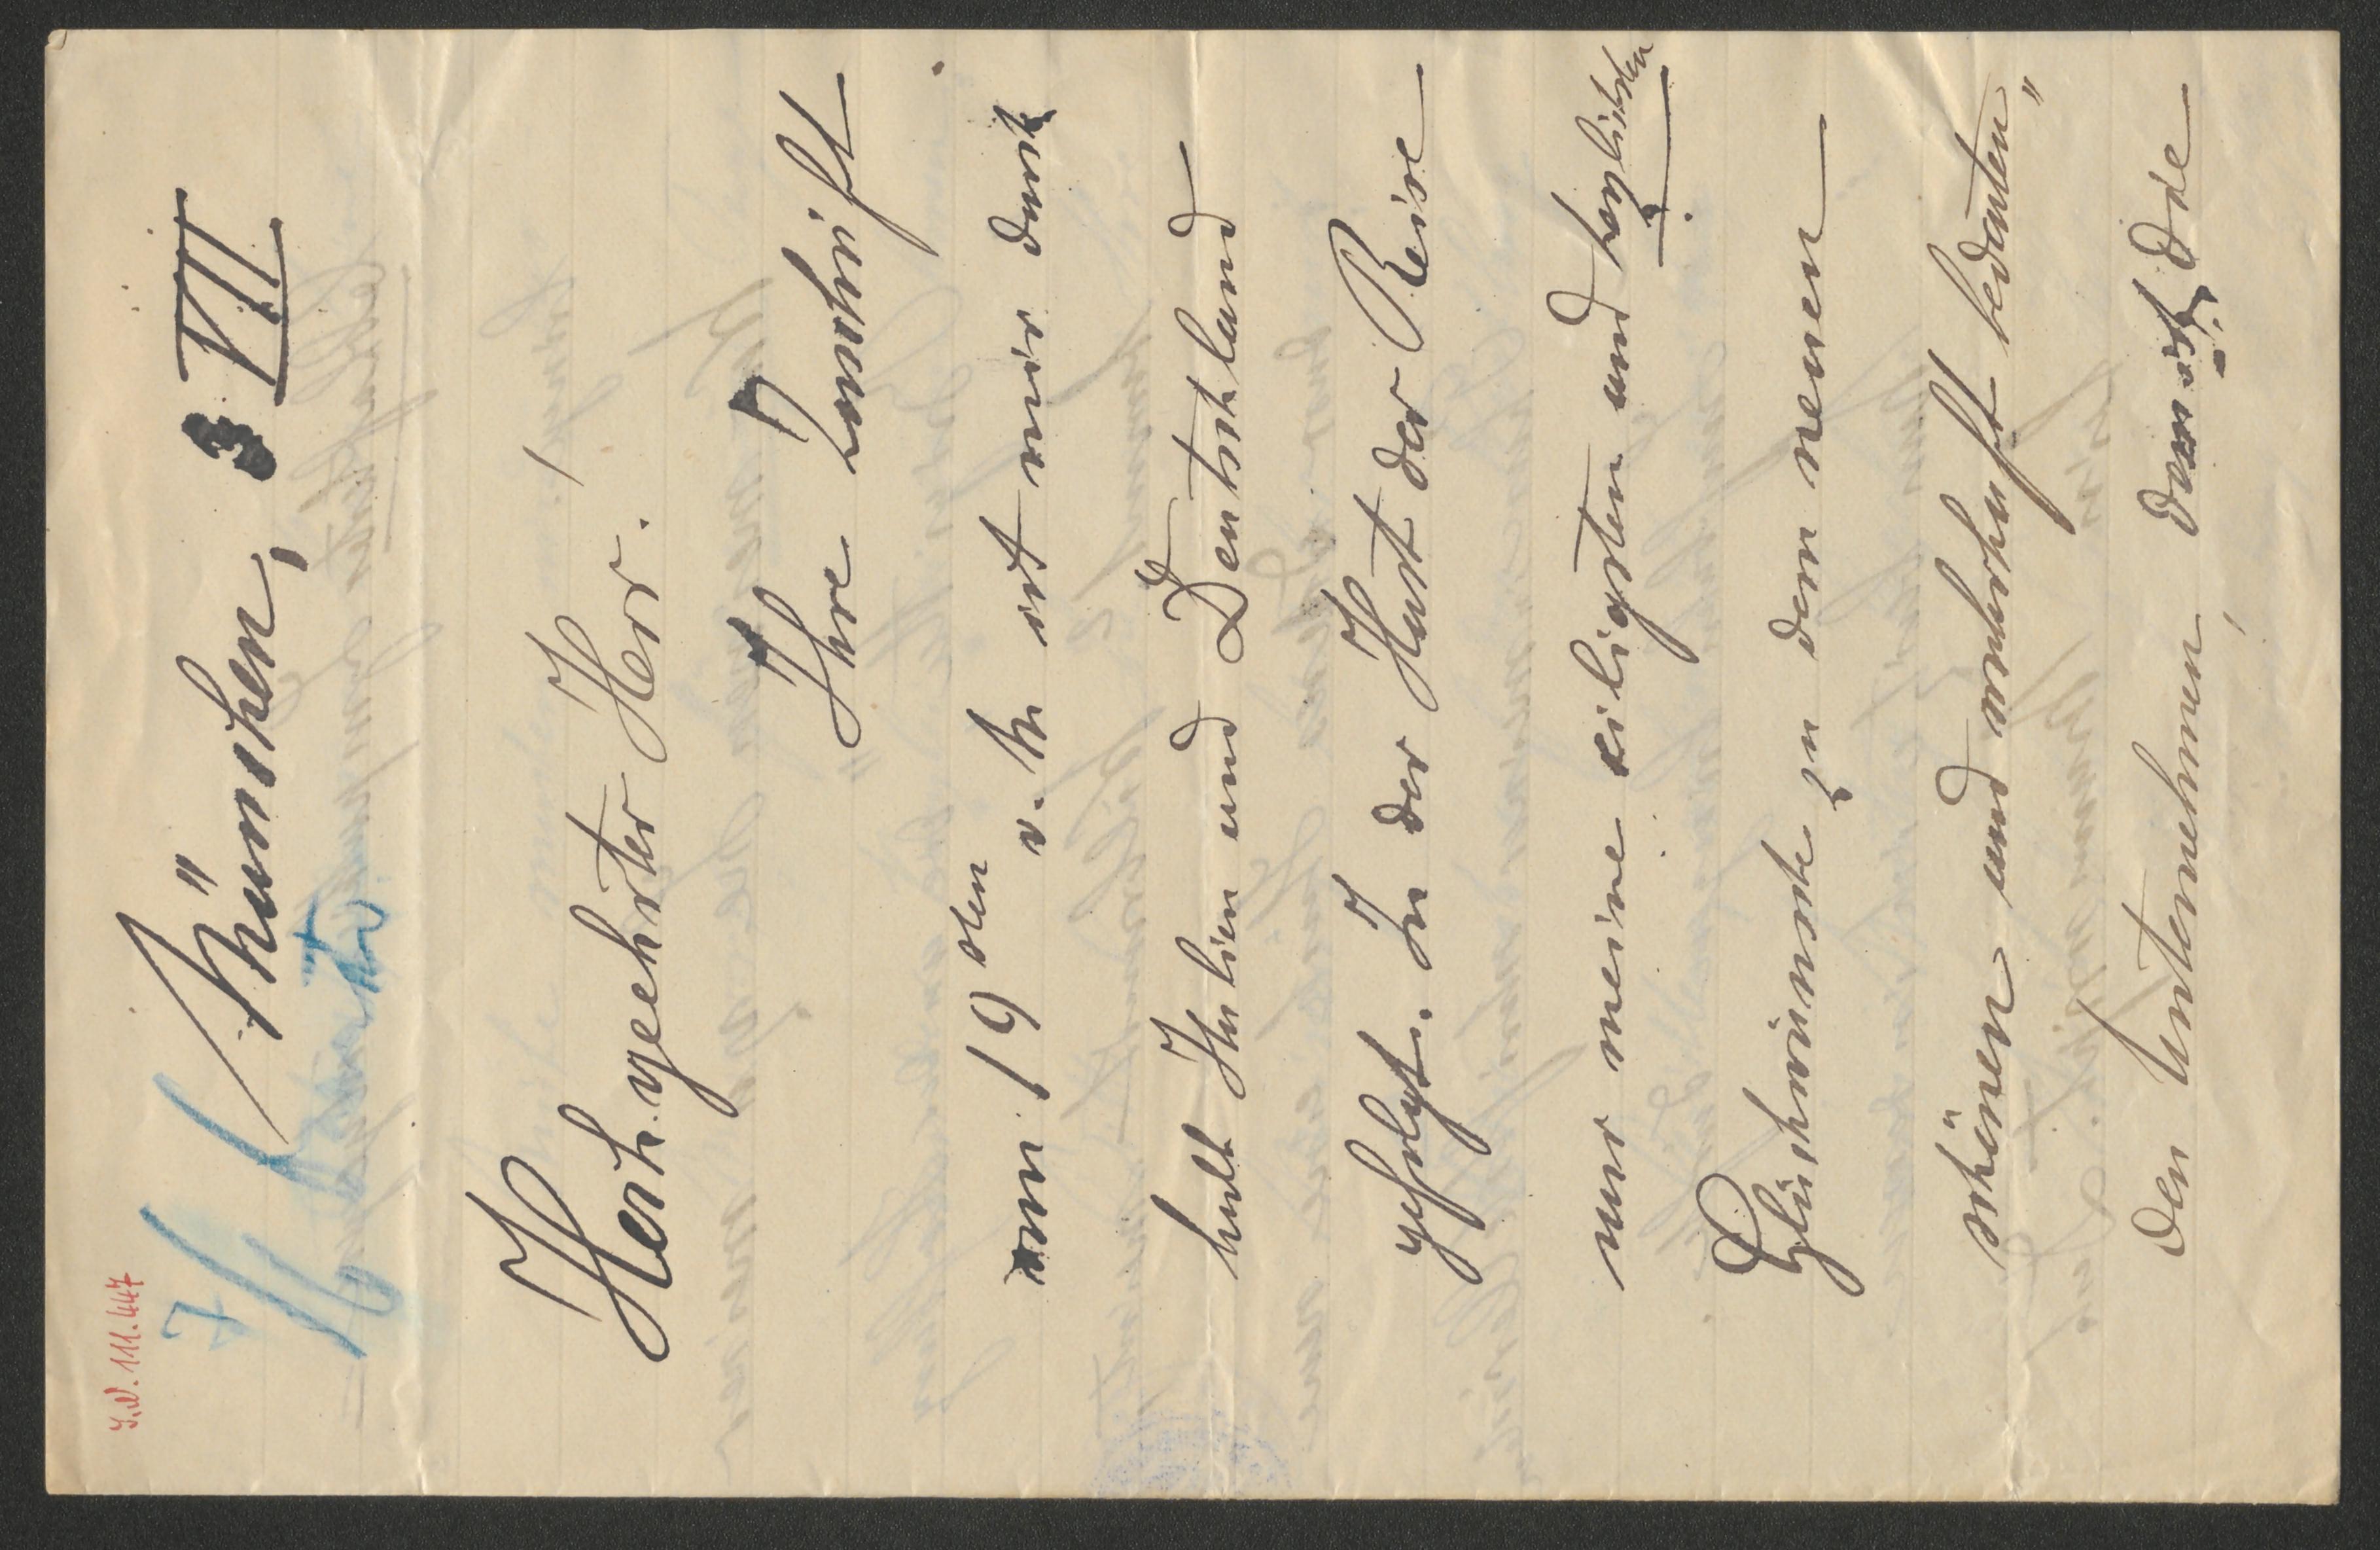 I.N. 111.447
7
München, 3 VII
Hochgeehrter Herr!
Ihre Zuschrift
vom 19ten v. M. ist mir durch
halb Italien und Deutschland
gefolgt. In der Hast der Reise
nur meine eiligsten und herzlichsten
Glückwünsche zu dem neuen
schönen und wahrhaft bedeuten„
den Unternehmen, durch die